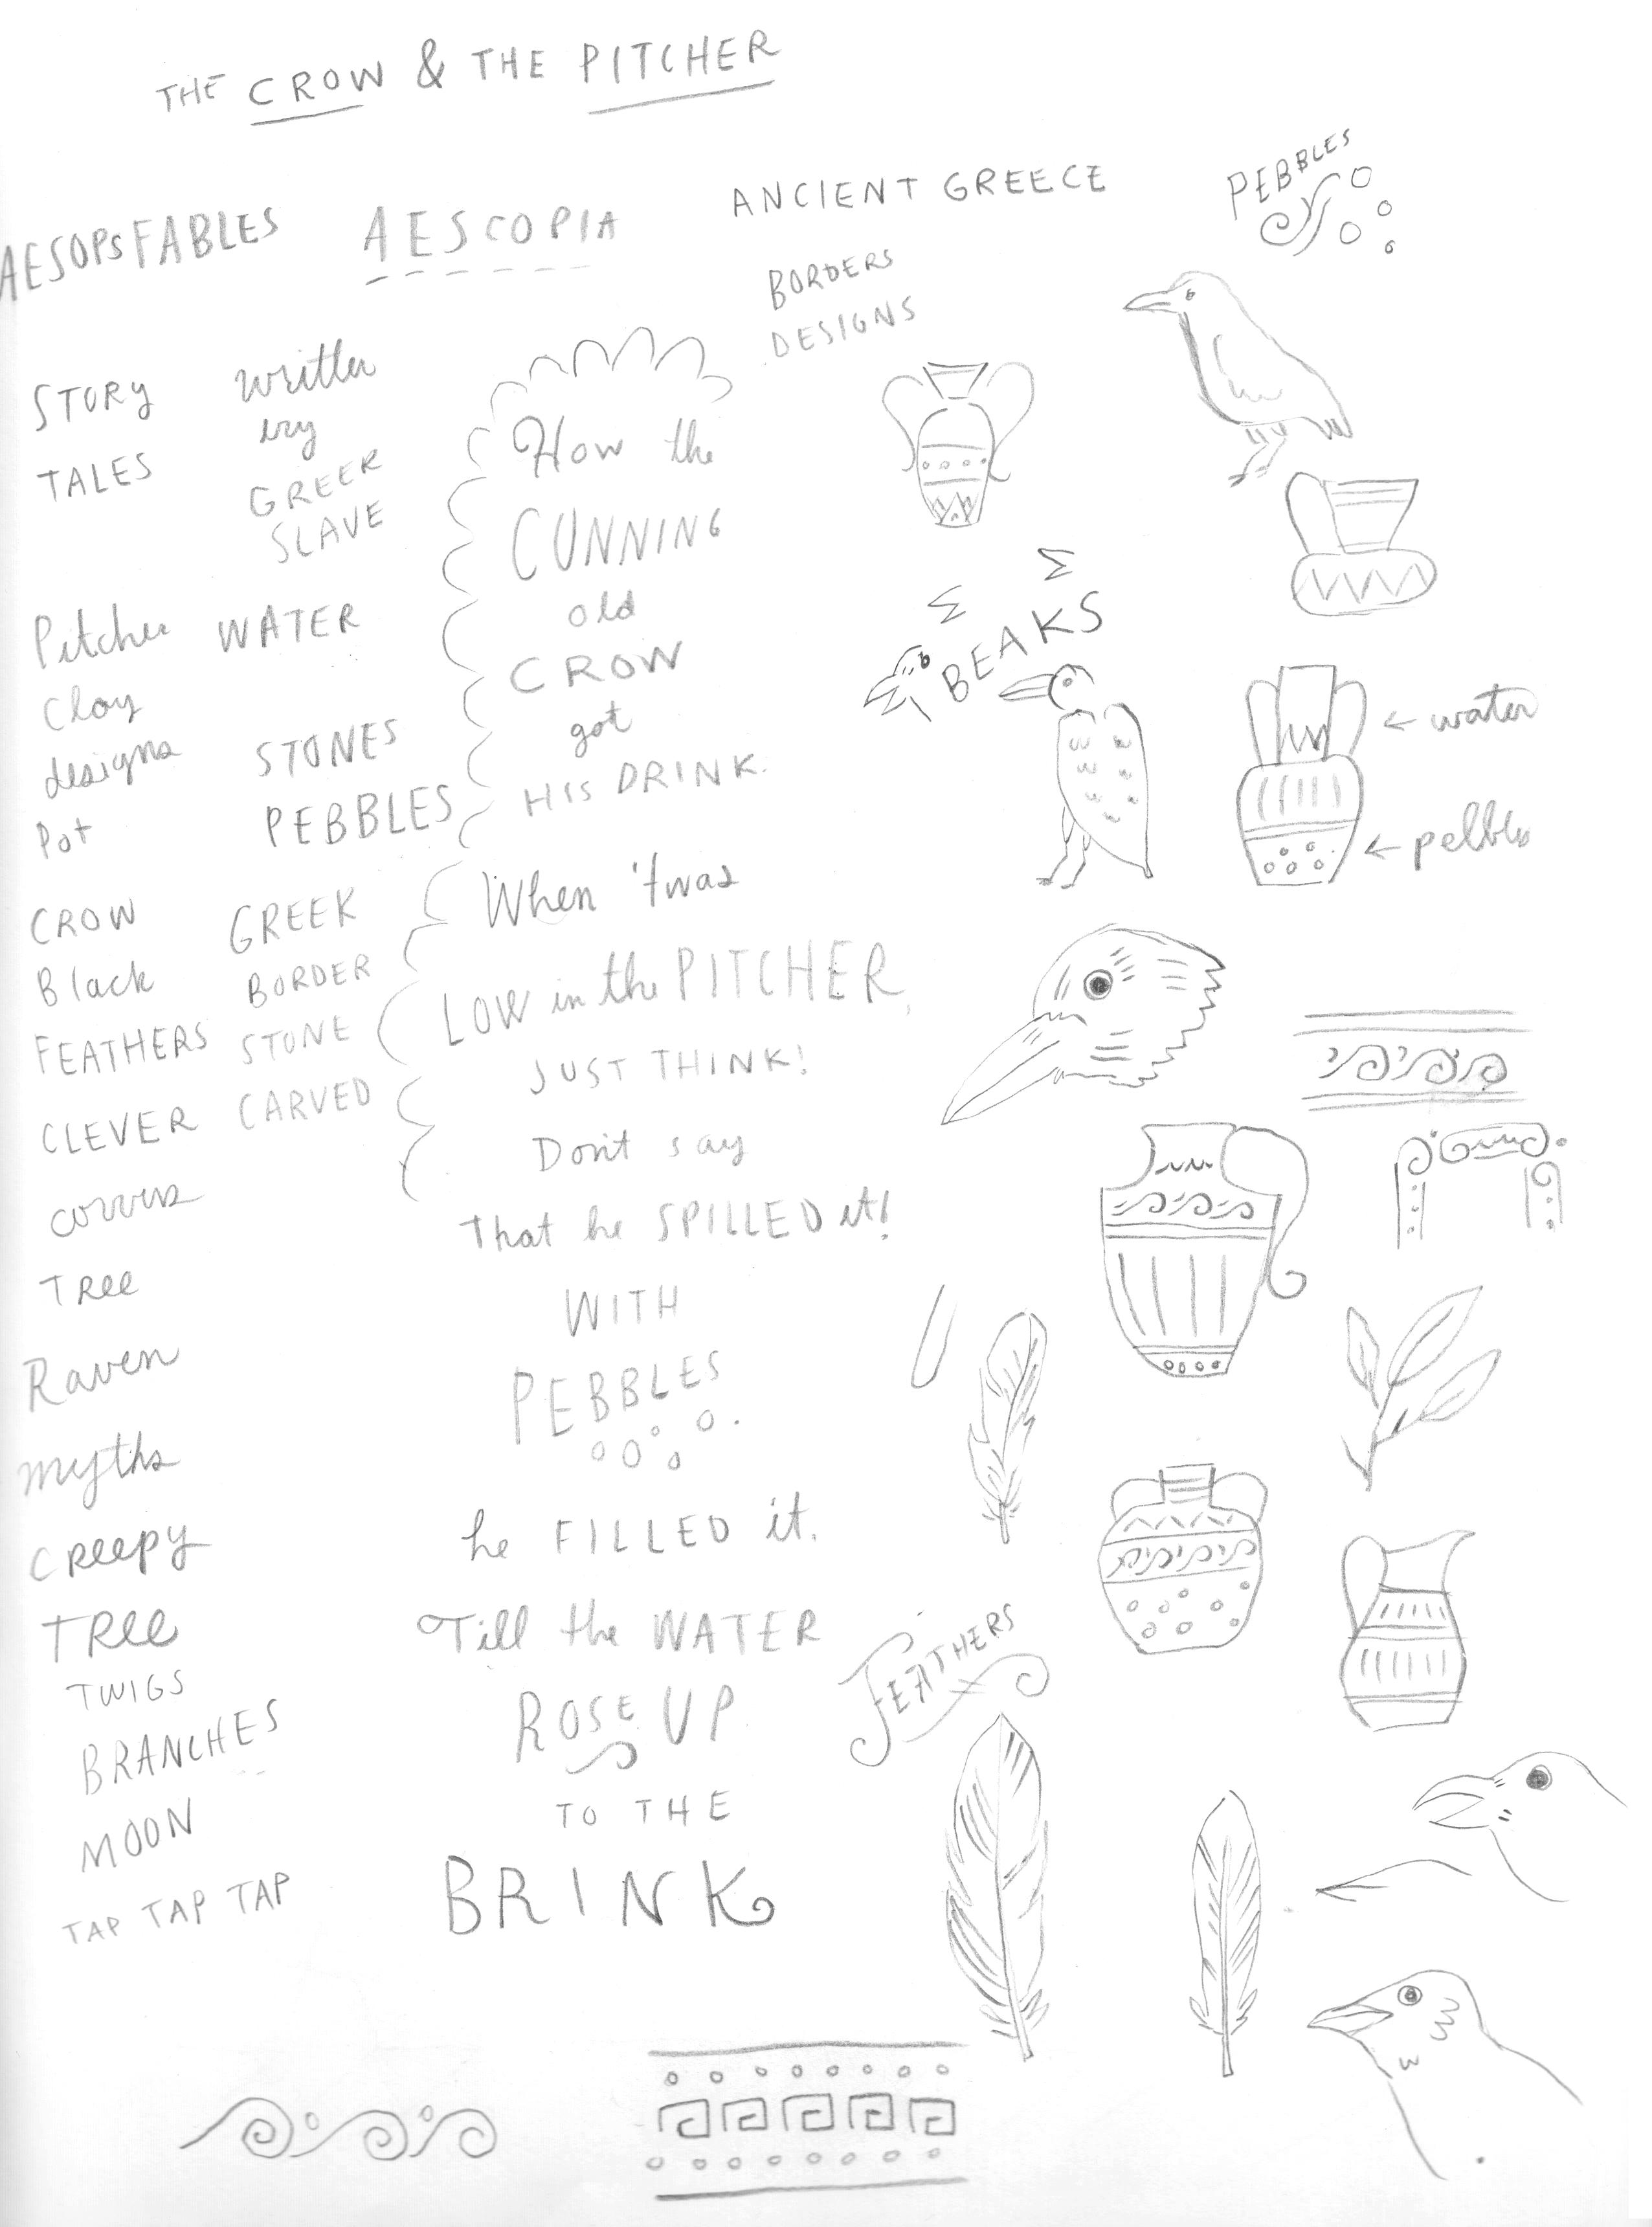 THE CROW & THE PITCHER
AESOPS FABLES
AESCOPIA
ANCIENT GREECE
PEBBLES
BORDERS
DESIGNS
STORY
TALES
written
by
GREEK
SLAVE
Pitcher
Clay
designs
Pot
WATER
STONES
PEBBLES
CROW
Black
FEATHERS
CLEVER
corvus
TRee
Raven
myths
CReepy
TRee
TWIGS
BRANCHES
MOON
TAP TAP TAP
GREEK
BORDER
STONE
CARVED
How the
CUNNING
old
CROW
got
HIS DRINK.
When 'twas
LOW in the PITCHER,
JUST THINK!
Don't say
That he SPILLED it!
WITH
PEBBLES
he FILLED it.
Till the WATER
ROSE UP
TO THE
BRINK
BEAKS
← water
← pebbles
FEATHERS